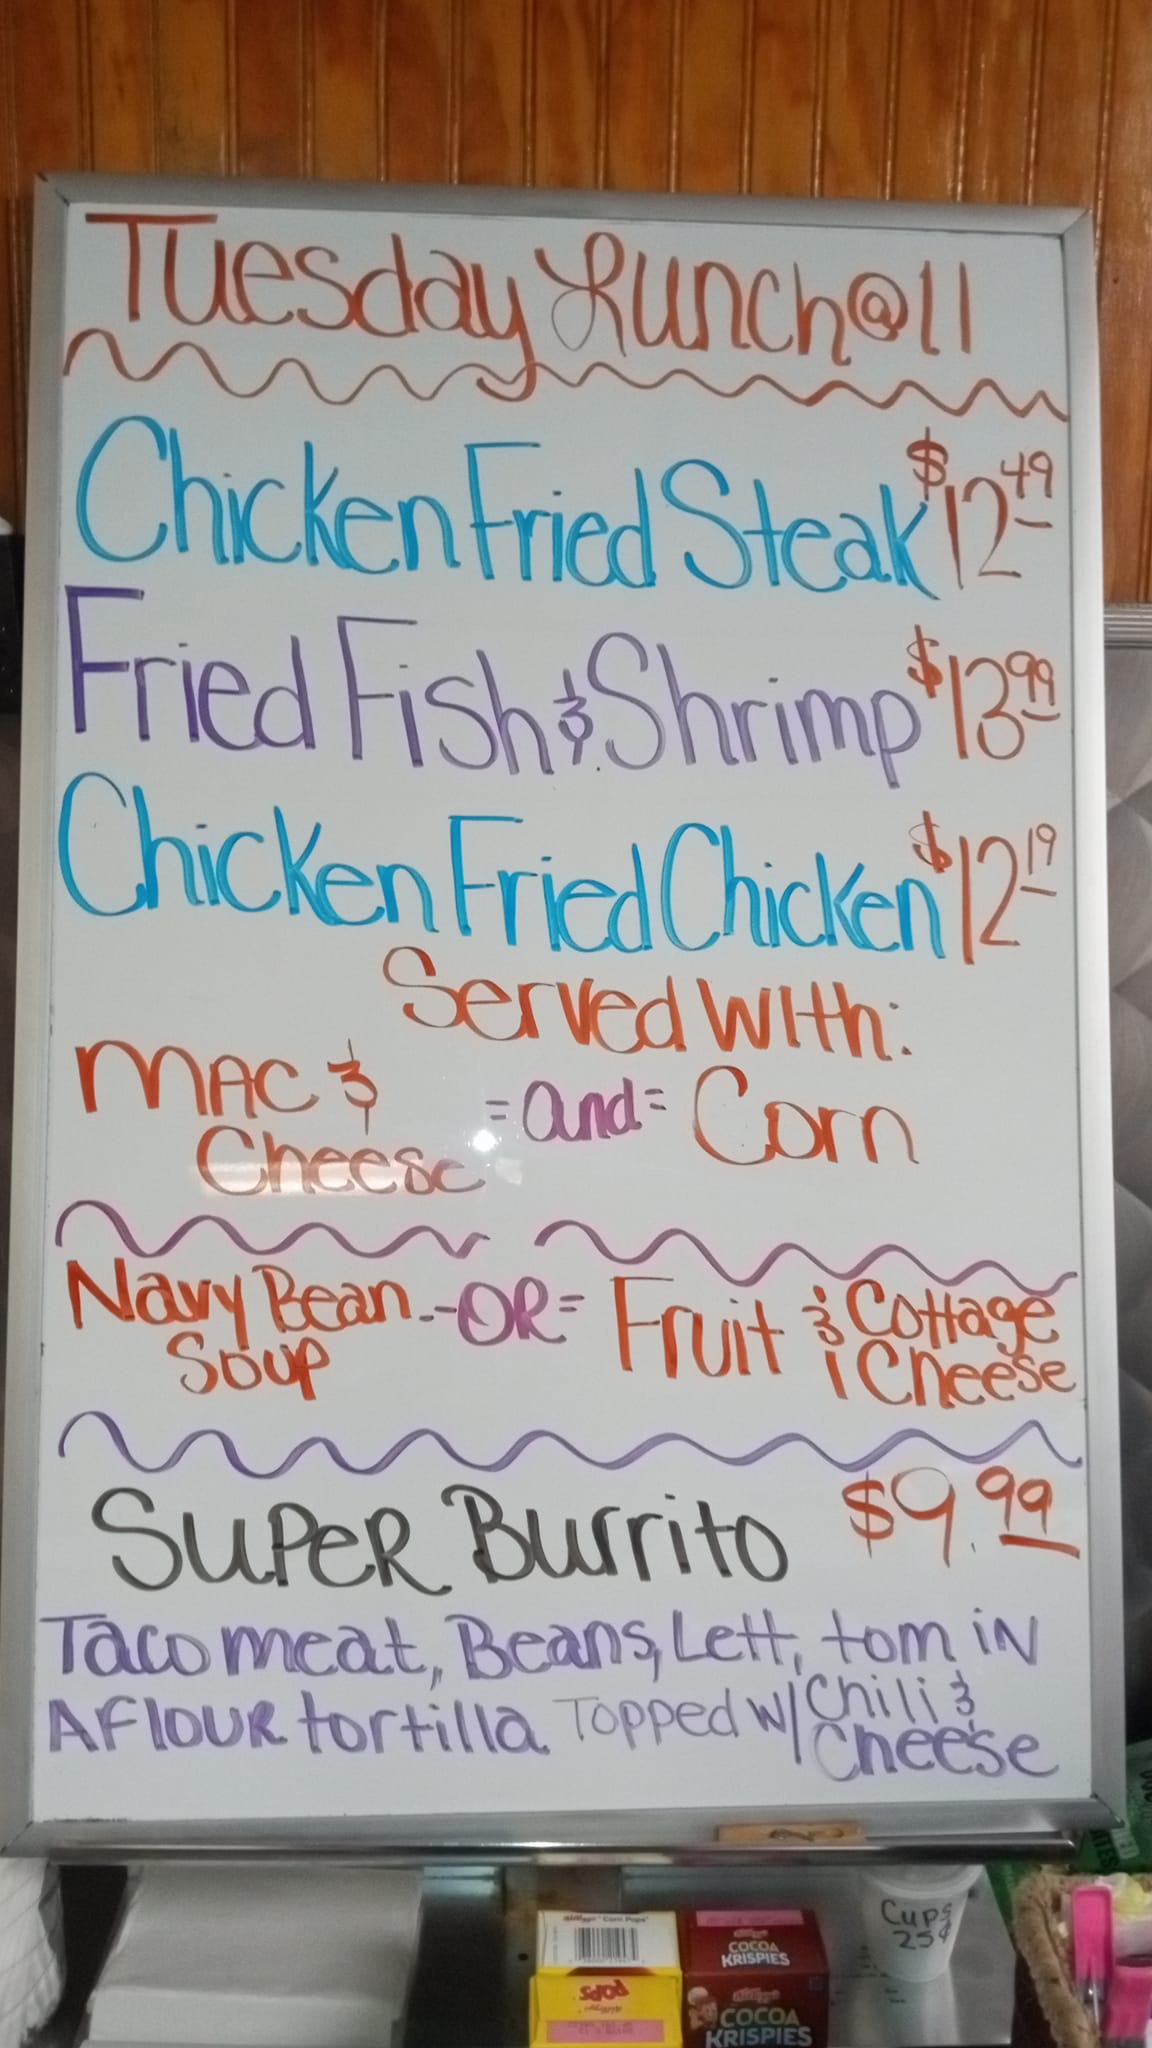 Tuesday Lunch@11
Chicken Fried Steak $12.49
Fried Fish & Shrimp $13.99
Chicken Fried Chicken $12.19
Served With:
Mac & Cheese =and= Corn
Navy Bean Soup -OR= Fruit & Cottage Cheese
Super Burrito $9.99
Taco meat, Beans, Lett, tom in
A flour tortilla Topped w/ Chili & Cheese
Cups
25¢
Kellogg's Corn Pops
POPS
Kellogg's
COCOA
KRISPIES
Kellogg's
COCOA
KRISPIES